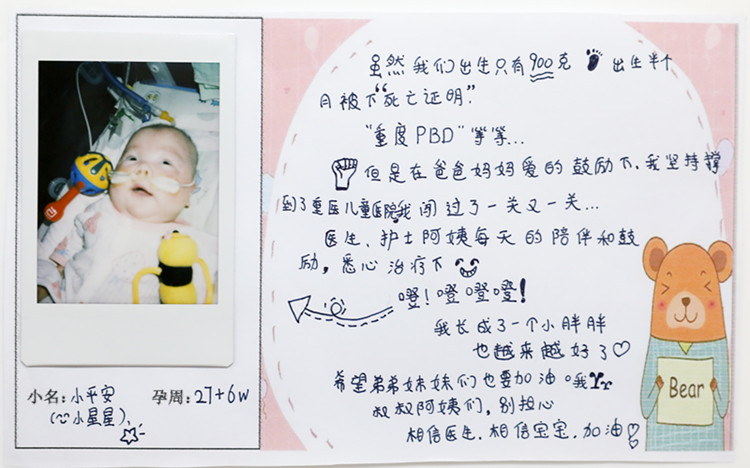 小名：小平安
(心小星星)
孕周：27+6w
虽然我们出生只有900克 出生半个
月被下“死亡证明”
“重度PBD”等等...
但是在爸爸妈妈爱的鼓励下，我坚持撑
到了重医儿童医院我闯过了一关又一关...
医生、护士阿姨每天的陪伴和鼓
励，悉心治疗下
噔！噔噔噔！
我长成了一个小胖胖
也越来越好了
希望弟弟妹妹们也要加油哦
叔叔阿姨们，别担心
相信医生，相信宝宝，加油
Bear